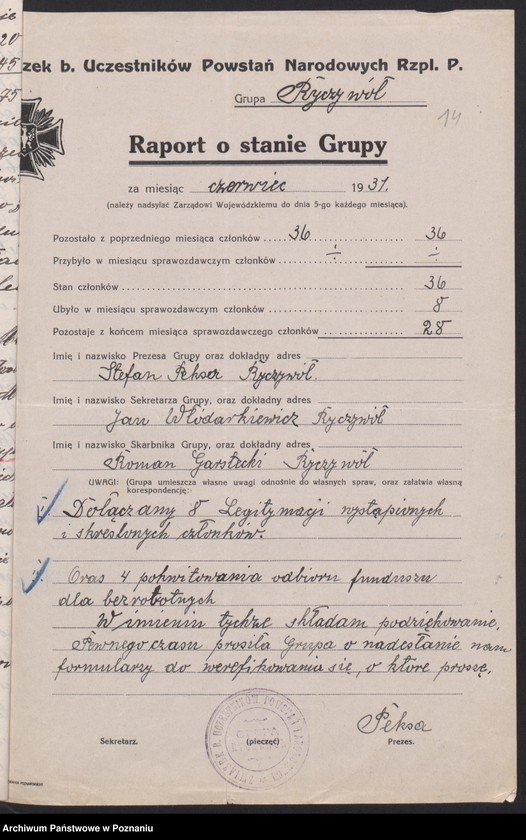 zek b. Uczestników Powstań Narodowych Rzpl. P.
Grupa Ryczywół
14
Raport o stanie Grupy
za miesiąc czerwiec 1931.
(należy nadsyłać Zarządowi Wojewódzkiemu do dnia 5-go każdego miesiąca).
Pozostało z poprzedniego miesiąca członków 36 36
Przybyło w miesiącu sprawozdawczym członków ÷ ÷
Stan członków 36
Ubyło w miesiącu sprawozdawczym członków 8
Pozostaje z końcem miesiąca sprawozdawczego członków 28
Imię i nazwisko Prezesa Grupy oraz dokładny adres
Stefan Peksa Ryczywół.
Imię i nazwisko Sekretarza Grupy, oraz dokładny adres
Jan Włodarkiewicz Ryczywół
Imię i nazwisko Skarbnika Grupy, oraz dokładny adres
Roman Garstecki Ryczywół
UWAGI: (Grupa umieszcza własne uwagi odnośnie do własnych spraw, oraz załatwia własną
korespondencję:-
Dołączamy 8 Legitymacji wystąpionych
i skreślonych członków.
Oras 4 pokwitowania odbioru funduszu
dla bezrobotnych
W imieniu tychże składam podziękowanie.
Pewnego czasu prosiła Grupa o nadesłanie nam
formularzy do werefikowania się, o które proszę.
Peksa
Sekretarz. (pieczęć) Prezes.
Archiwum Państwowe w Poznaniu